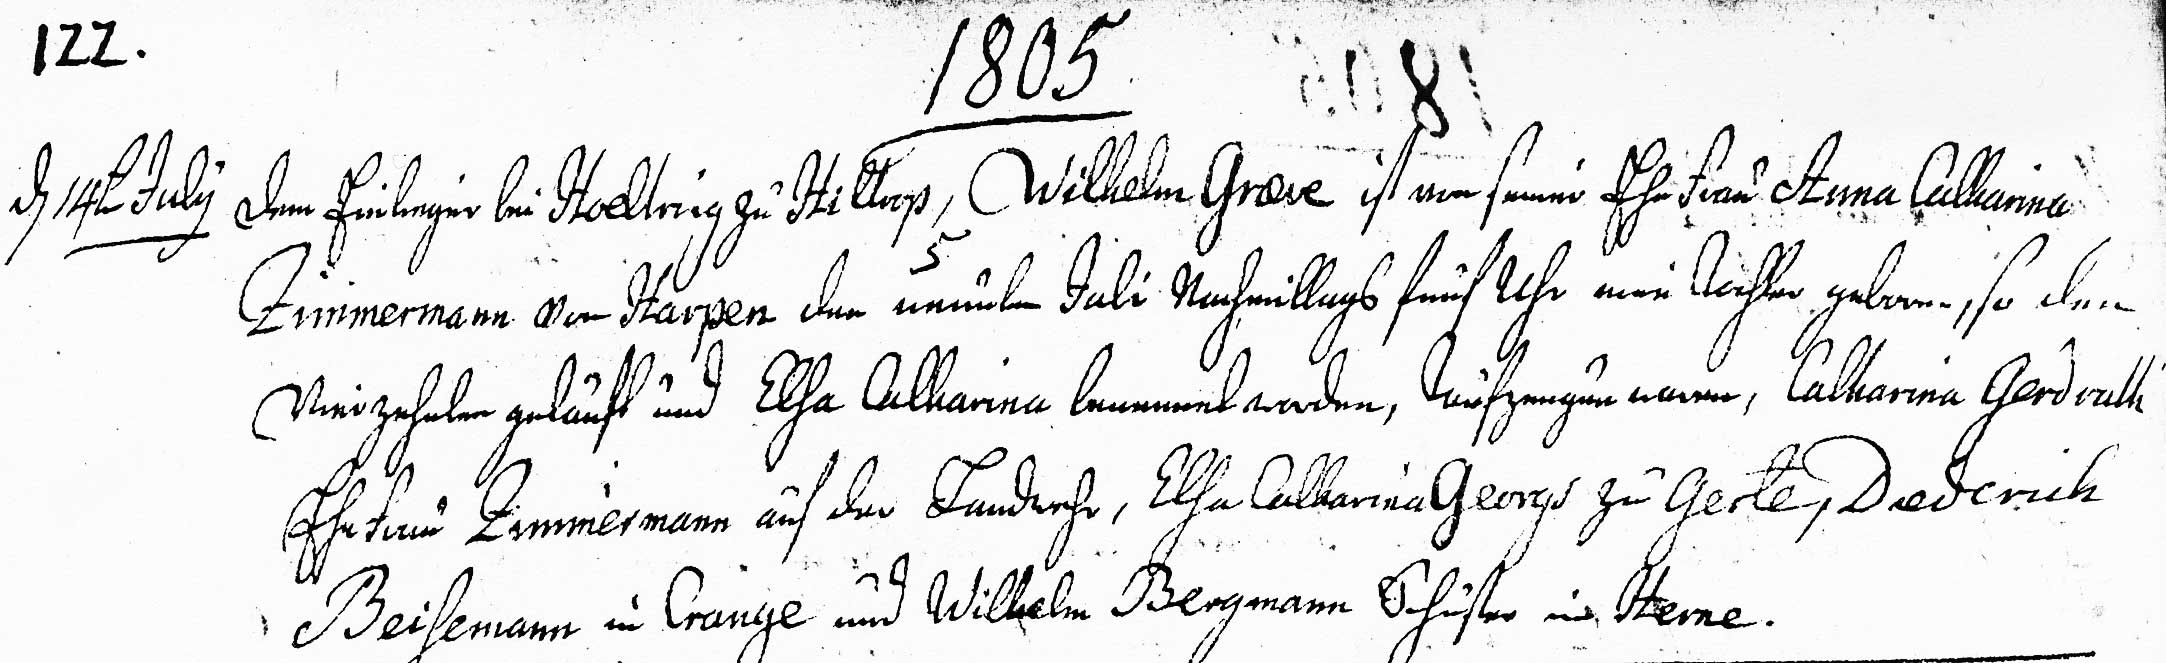 122.
1805
d 14t July dem Einlieger bei Hoeltring zu Hiltrop, Wilhelm Græve ist von seiner Ehefrau Anna Catharina
5
Zimmermann von Harpen den neunten Juli Nachmittags fünf Uhr eine Tochter geboren, so den
Vierzehnten getauft und Elsa Catharina benennet worden, Taufzeugen waren, Catharina Gerdruth
Ehefrau Zimmermann auf der Landwehr, Elsa Catharina Georgs zu Gerte, Diederich
Beisemann in Crange und Wilhelm Bergmann Schuster in Herne.